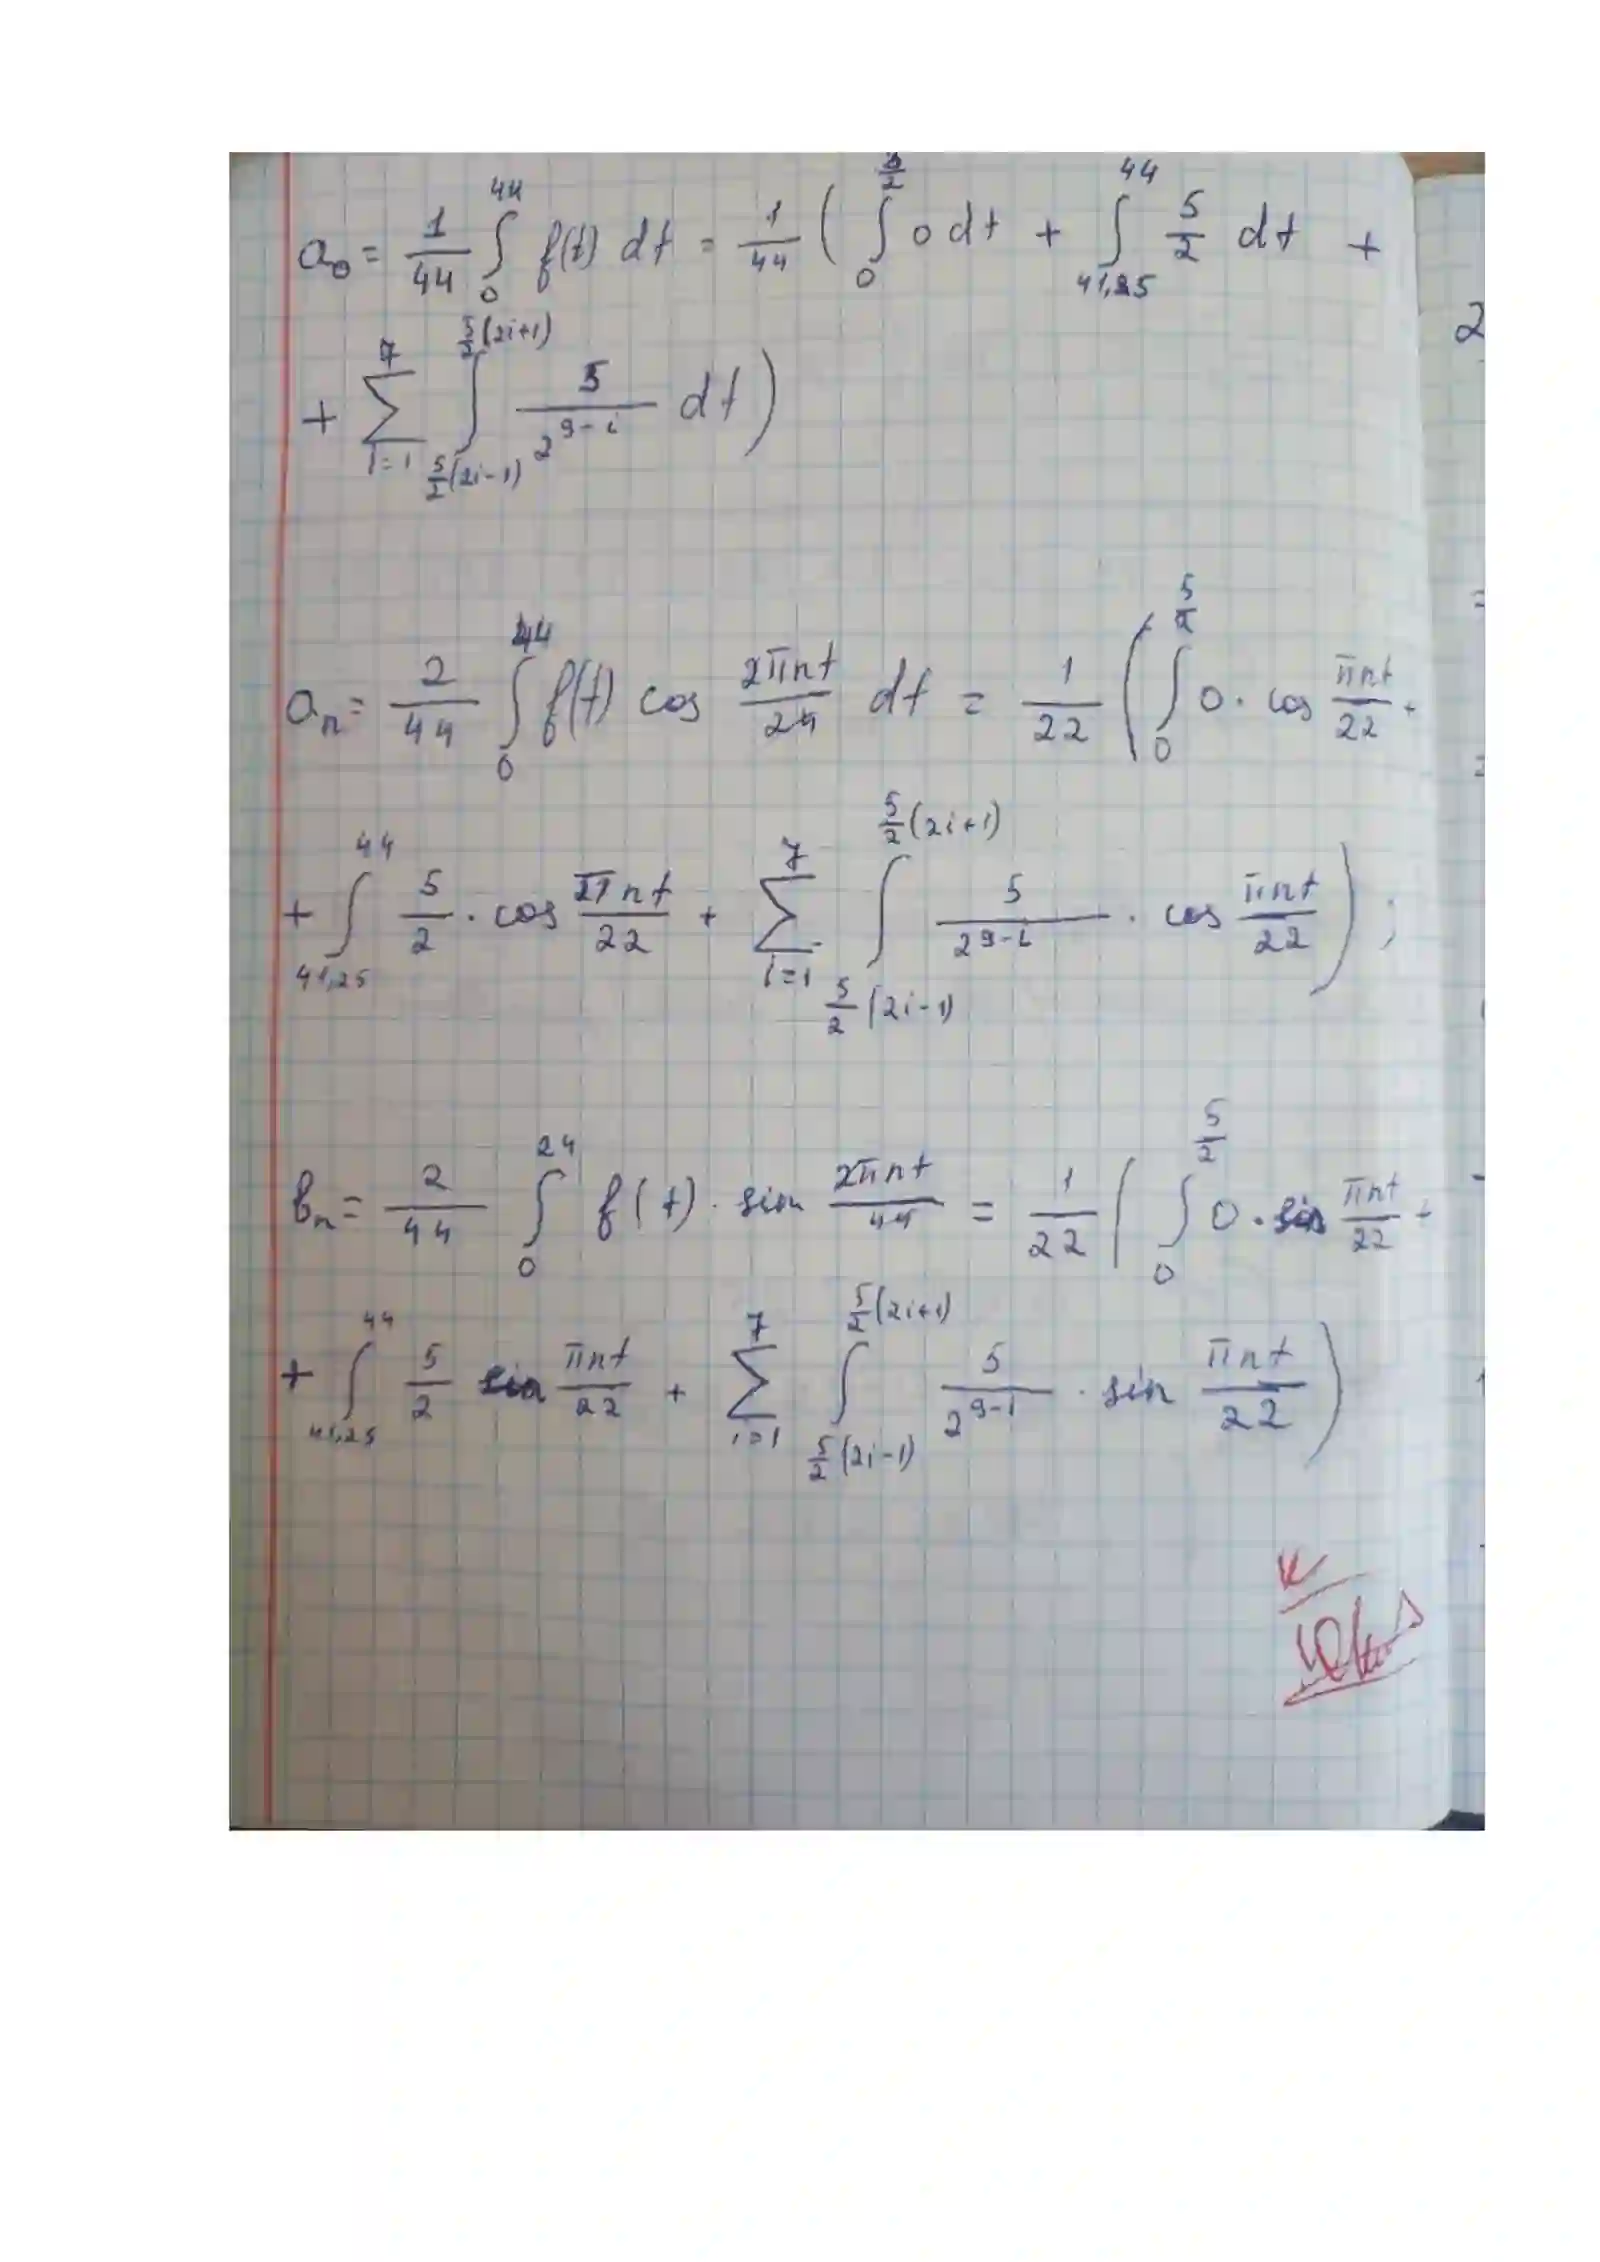 a₀ = 1/44 ∫₀⁴⁴ f(t) dt = 1/44 ( ∫₀^(5/2) 0 dt + ∫_(41,25)^44 5/2 dt +
+ ∑_(i=1)^7 ∫_(5/2(2i-1))^(5/2(2i+1)) 5/2^(9-i) dt )
aₙ = 2/44 ∫₀⁴⁴ f(t) cos 2πnt/24 dt = 1/22 ( ∫₀^(5/2) 0 · cos πnt/22 +
+ ∫_(41,25)^44 5/2 · cos πnt/22 + ∑_(i=1)^7 ∫_(5/2(2i-1))^(5/2(2i+1)) 5/2^(9-i) · cos πnt/22 ) ;
bₙ = 2/44 ∫₀²⁴ f(t) · sin 2πnt/44 = 1/22 ( ∫₀^(5/2) 0 · sin πnt/22 +
+ ∫_(41,25)^44 5/2 sin πnt/22 + ∑_(i=1)^7 ∫_(5/2(2i-1))^(5/2(2i+1)) 5/2^(9-i) · sin πnt/22 )